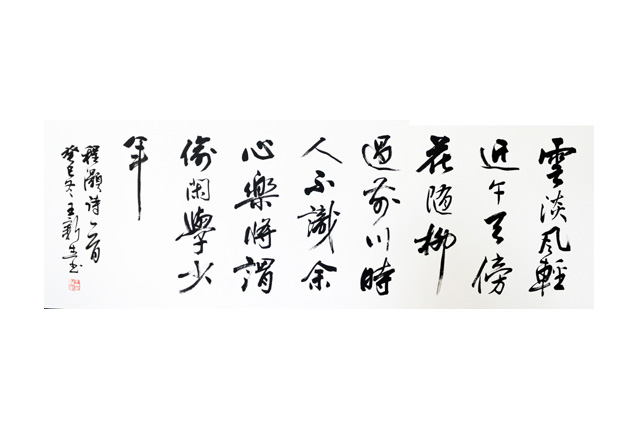 雲淡風輕
近午天傍
花随柳
過前川時
人不識余
心樂將謂
偷閑學少
年
程灝詩一首
癸巳冬王新生书